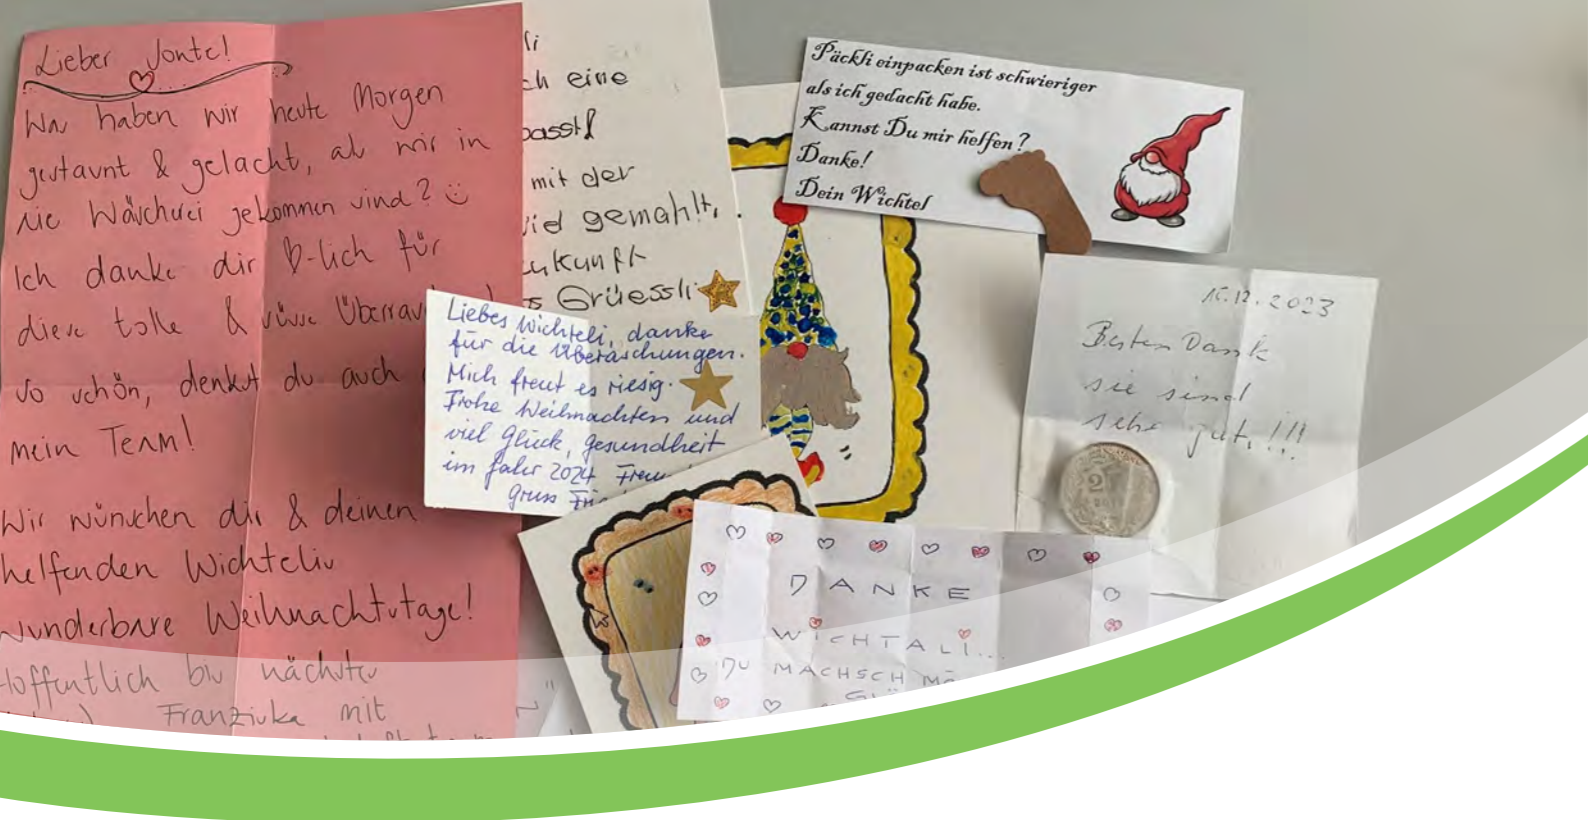 Lieber Jonte!
Was haben wir heute Morgen
gestaunt & gelacht, als wir in
die Wäscherei gekommen sind? ☺
Ich danke dir ♡-lich für
diese tolle & süsse
so schön, denkst du auch
mein Team!
Wir wünschen dir & deinen
helfenden Wichtelis
wunderbare Weihnachtstage!
Hoffentlich bis nächstes
Franziska mit
ch eine
passt!
mit der
gemahlt,
Grüessli
Päckli einpacken ist schwieriger
als ich gedacht habe.
Kannst Du mir helfen?
Danke!
Dein Wichtel
Liebes Wichteli, danke
für die Überaschungen.
Mich freut es riesig.
Frohe Weihnachten und
viel Glück, gesundheit
im Jahr 2024
gruss
12.2023
Besten Dank
sie sind
sehr gut,!!!
2
DANKE
WICHTALI...
DU MACHSCH